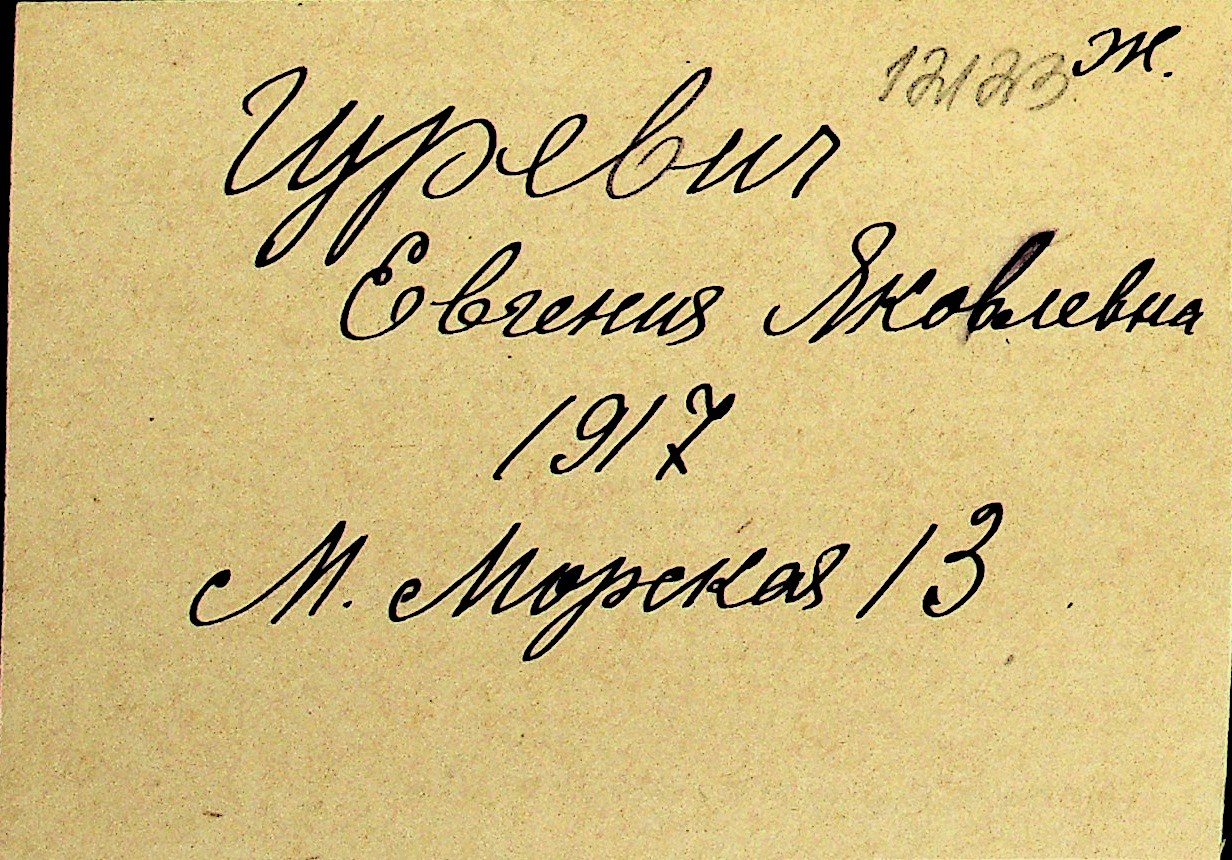 12123 ж.
Гуревич
Евгения Яковлевна
1917
М. Морская 13